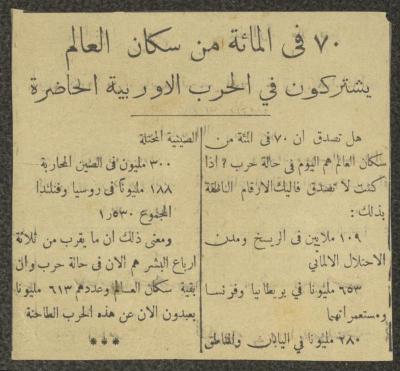 ٧٠ فى المائة من سكان العالم
يشتركون في الحرب الاوربية الحاضرة
هل تصدق ان ٧٠ فى المئة من
سكان العالم هم اليوم فى حالة حرب ؟ اذا
كنت لا تصدق فاليك الارقام الناطقة
بذلك :
١٠٩ ملايين فى الريخ ومدن
الاحتلال الالماني
٦٥٣ مليونا في بريطانيا وفرنسا
ومستعمراتهما
٢٨٠ مليونا في اليابان والمناطق
الصينية المحتلة
٣٠٠ مليون فى الصين المحاربة
١٨٨ مليونا في روسيا وفنلندا
المجموع ١٫٥٣٠
ومعنى ذلك ان ما يقرب من ثلاثة
ارباع البشر هم الان فى حالة حرب وان
بقية سكان العالم وعددهم ٦١٣ مليونا
بعيدون الان عن هذه الحرب الطاحنة
***